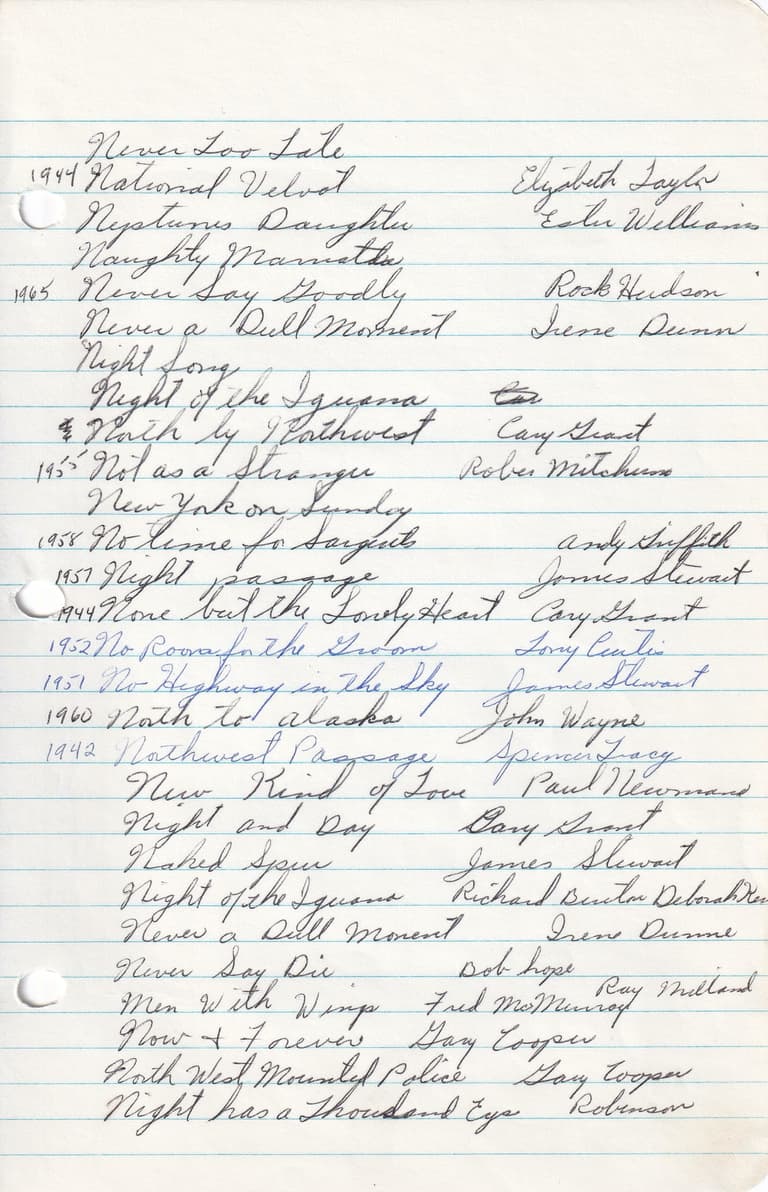 Never Too Late
1944 National Velvet Elizabeth Taylor
Neptunes Daughter Ester Williams
Naughty Marietta
1965 Never Say Goodby Rock Hudson
Never a Dull Moment Irene Dunn
Night Song
Night of the Iguana
North by Northwest Cary Grant
1955 Not as a Stranger Rober Mitchum
New York on Sunday
1958 No time for Sargents Andy Griffith
1957 Night passage James Stewart
1944 None but the Lonely Heart Cary Grant
1952 No Room for the Groom Tony Curtis
1951 No Highway in the Sky James Stewart
1960 North to Alaska John Wayne
1942 Northwest Passage Spencer Tracy
New Kind of Love Paul Newman
Night and Day Cary Grant
Naked Spur James Stewart
Night of the Iguana Richard Burton Deborah Kerr
Never a Dull Moment Irene Dunne
Never Say Die Bob hope
Men With Wings Fred McMurray Ray Milland
Now + Forever Gary Cooper
North West Mounted Police Gary Cooper
Night has a Thousand Eys Robinson